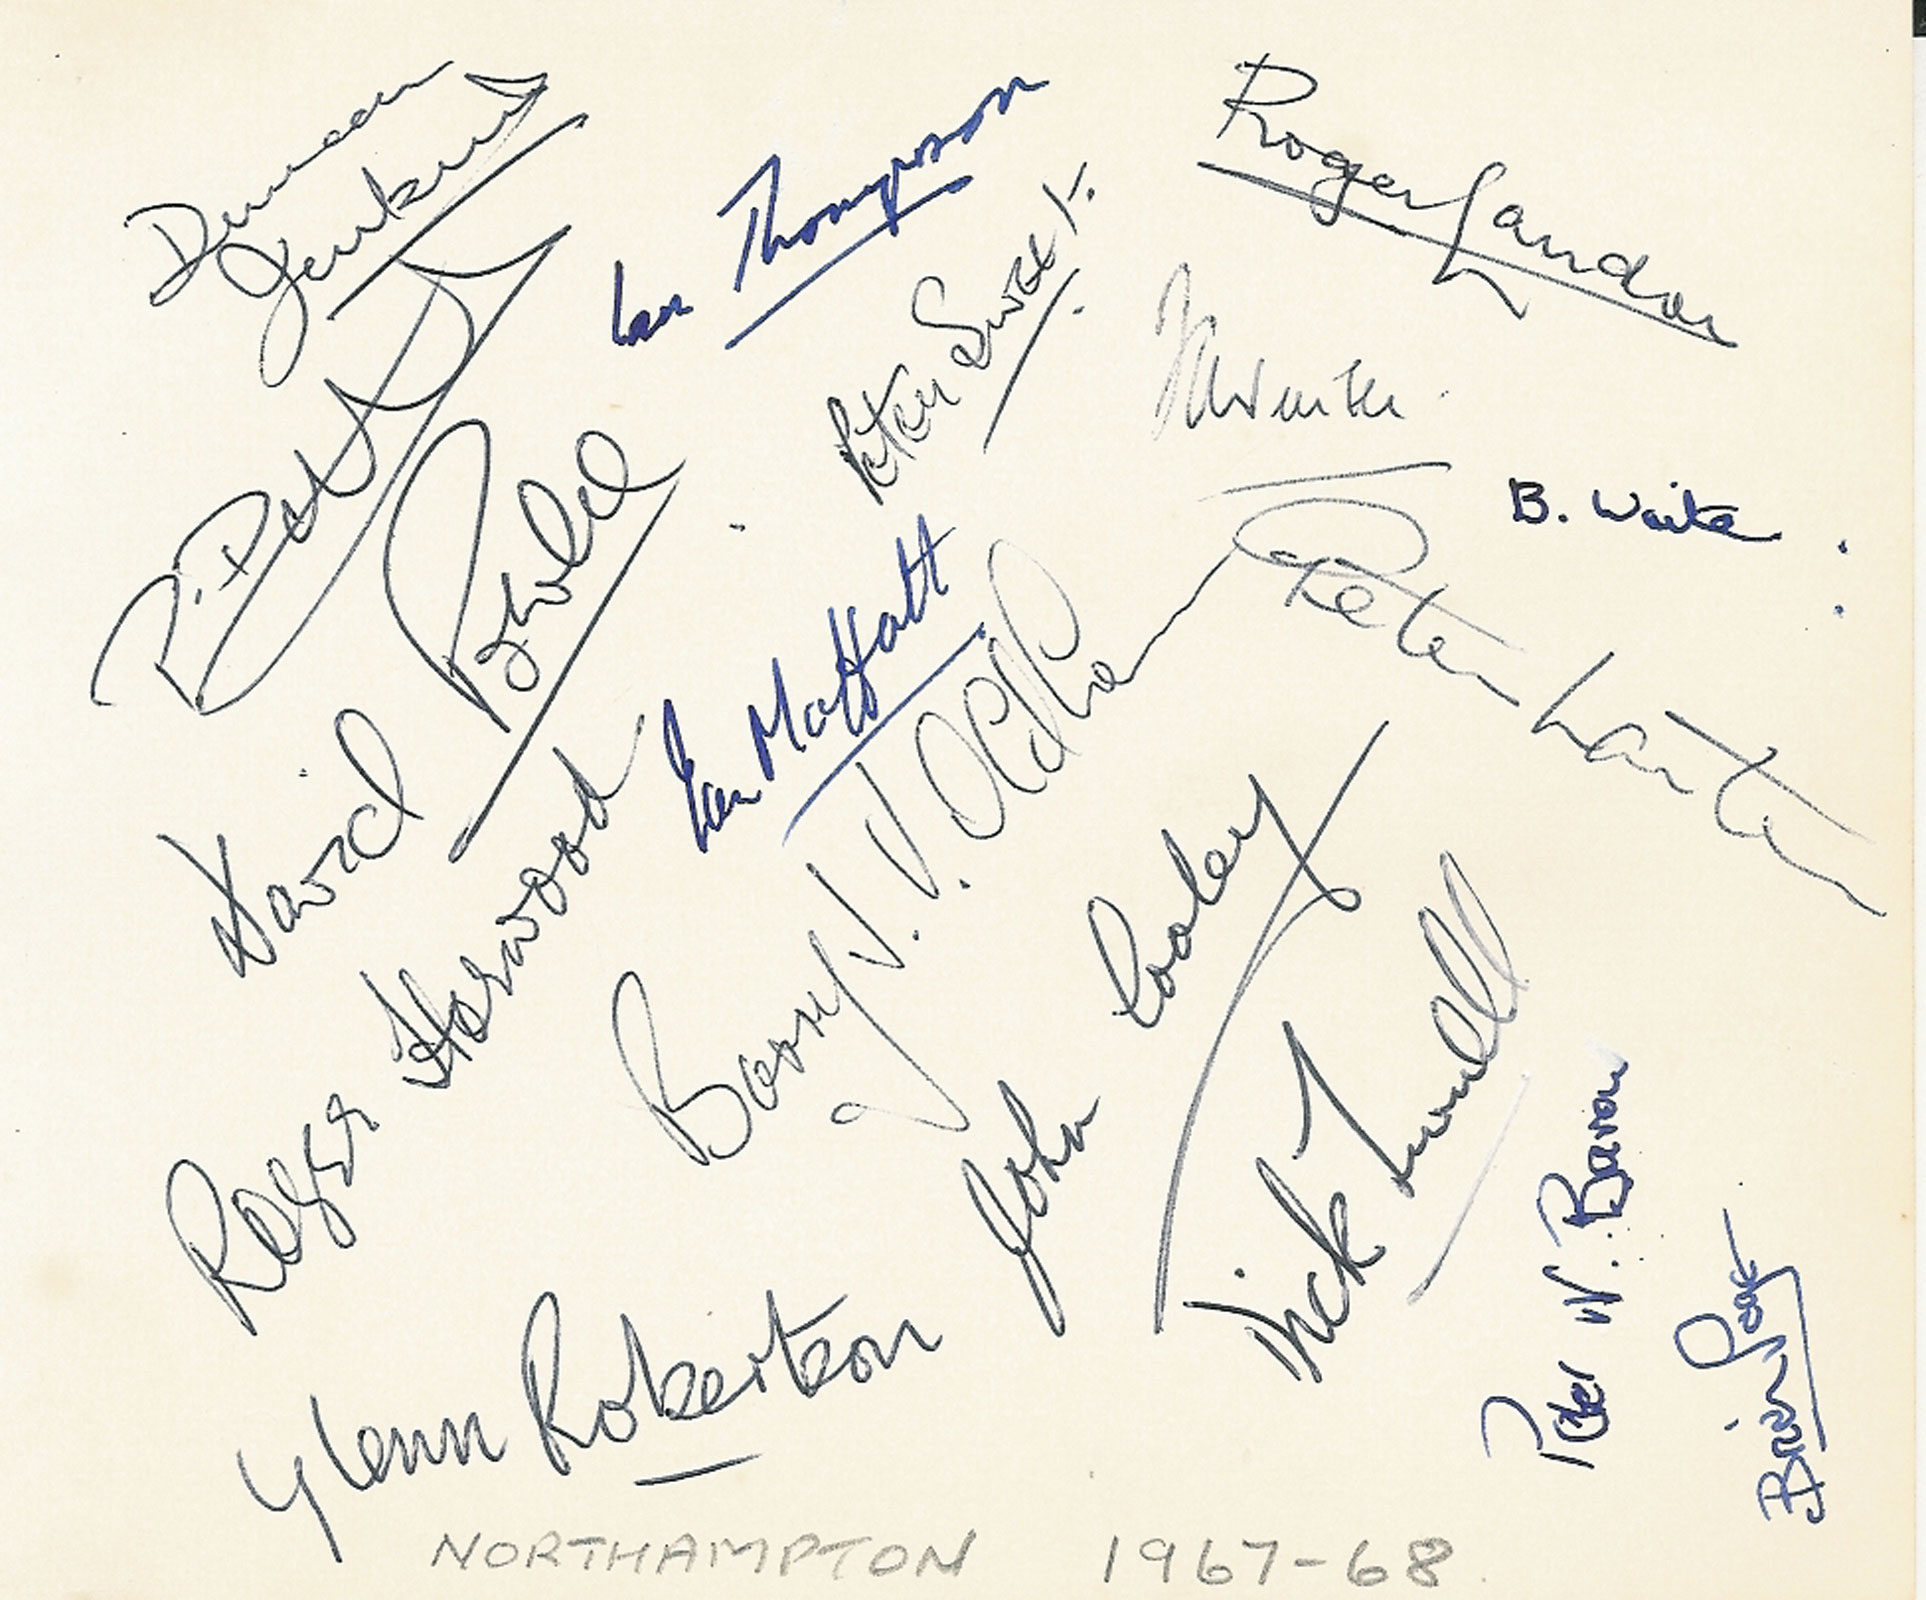 Duncan
Jenkins
Ian Thompson
Roger Landor
Peter Sweet.
Waite
B. Waite
David Bird
Ian Moffatt
Barry V. V. Oldham
Peter Larter
Roger Harwood
John Cooley
Dick Twell
Peter W. Baron
Brian
Glenn Robertson
NORTHAMPTON 1967-68